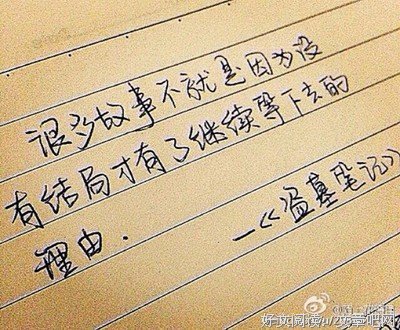 很多故事不就是因为没
有结局才有了继续等下去的
理由.
—《盗墓笔记》